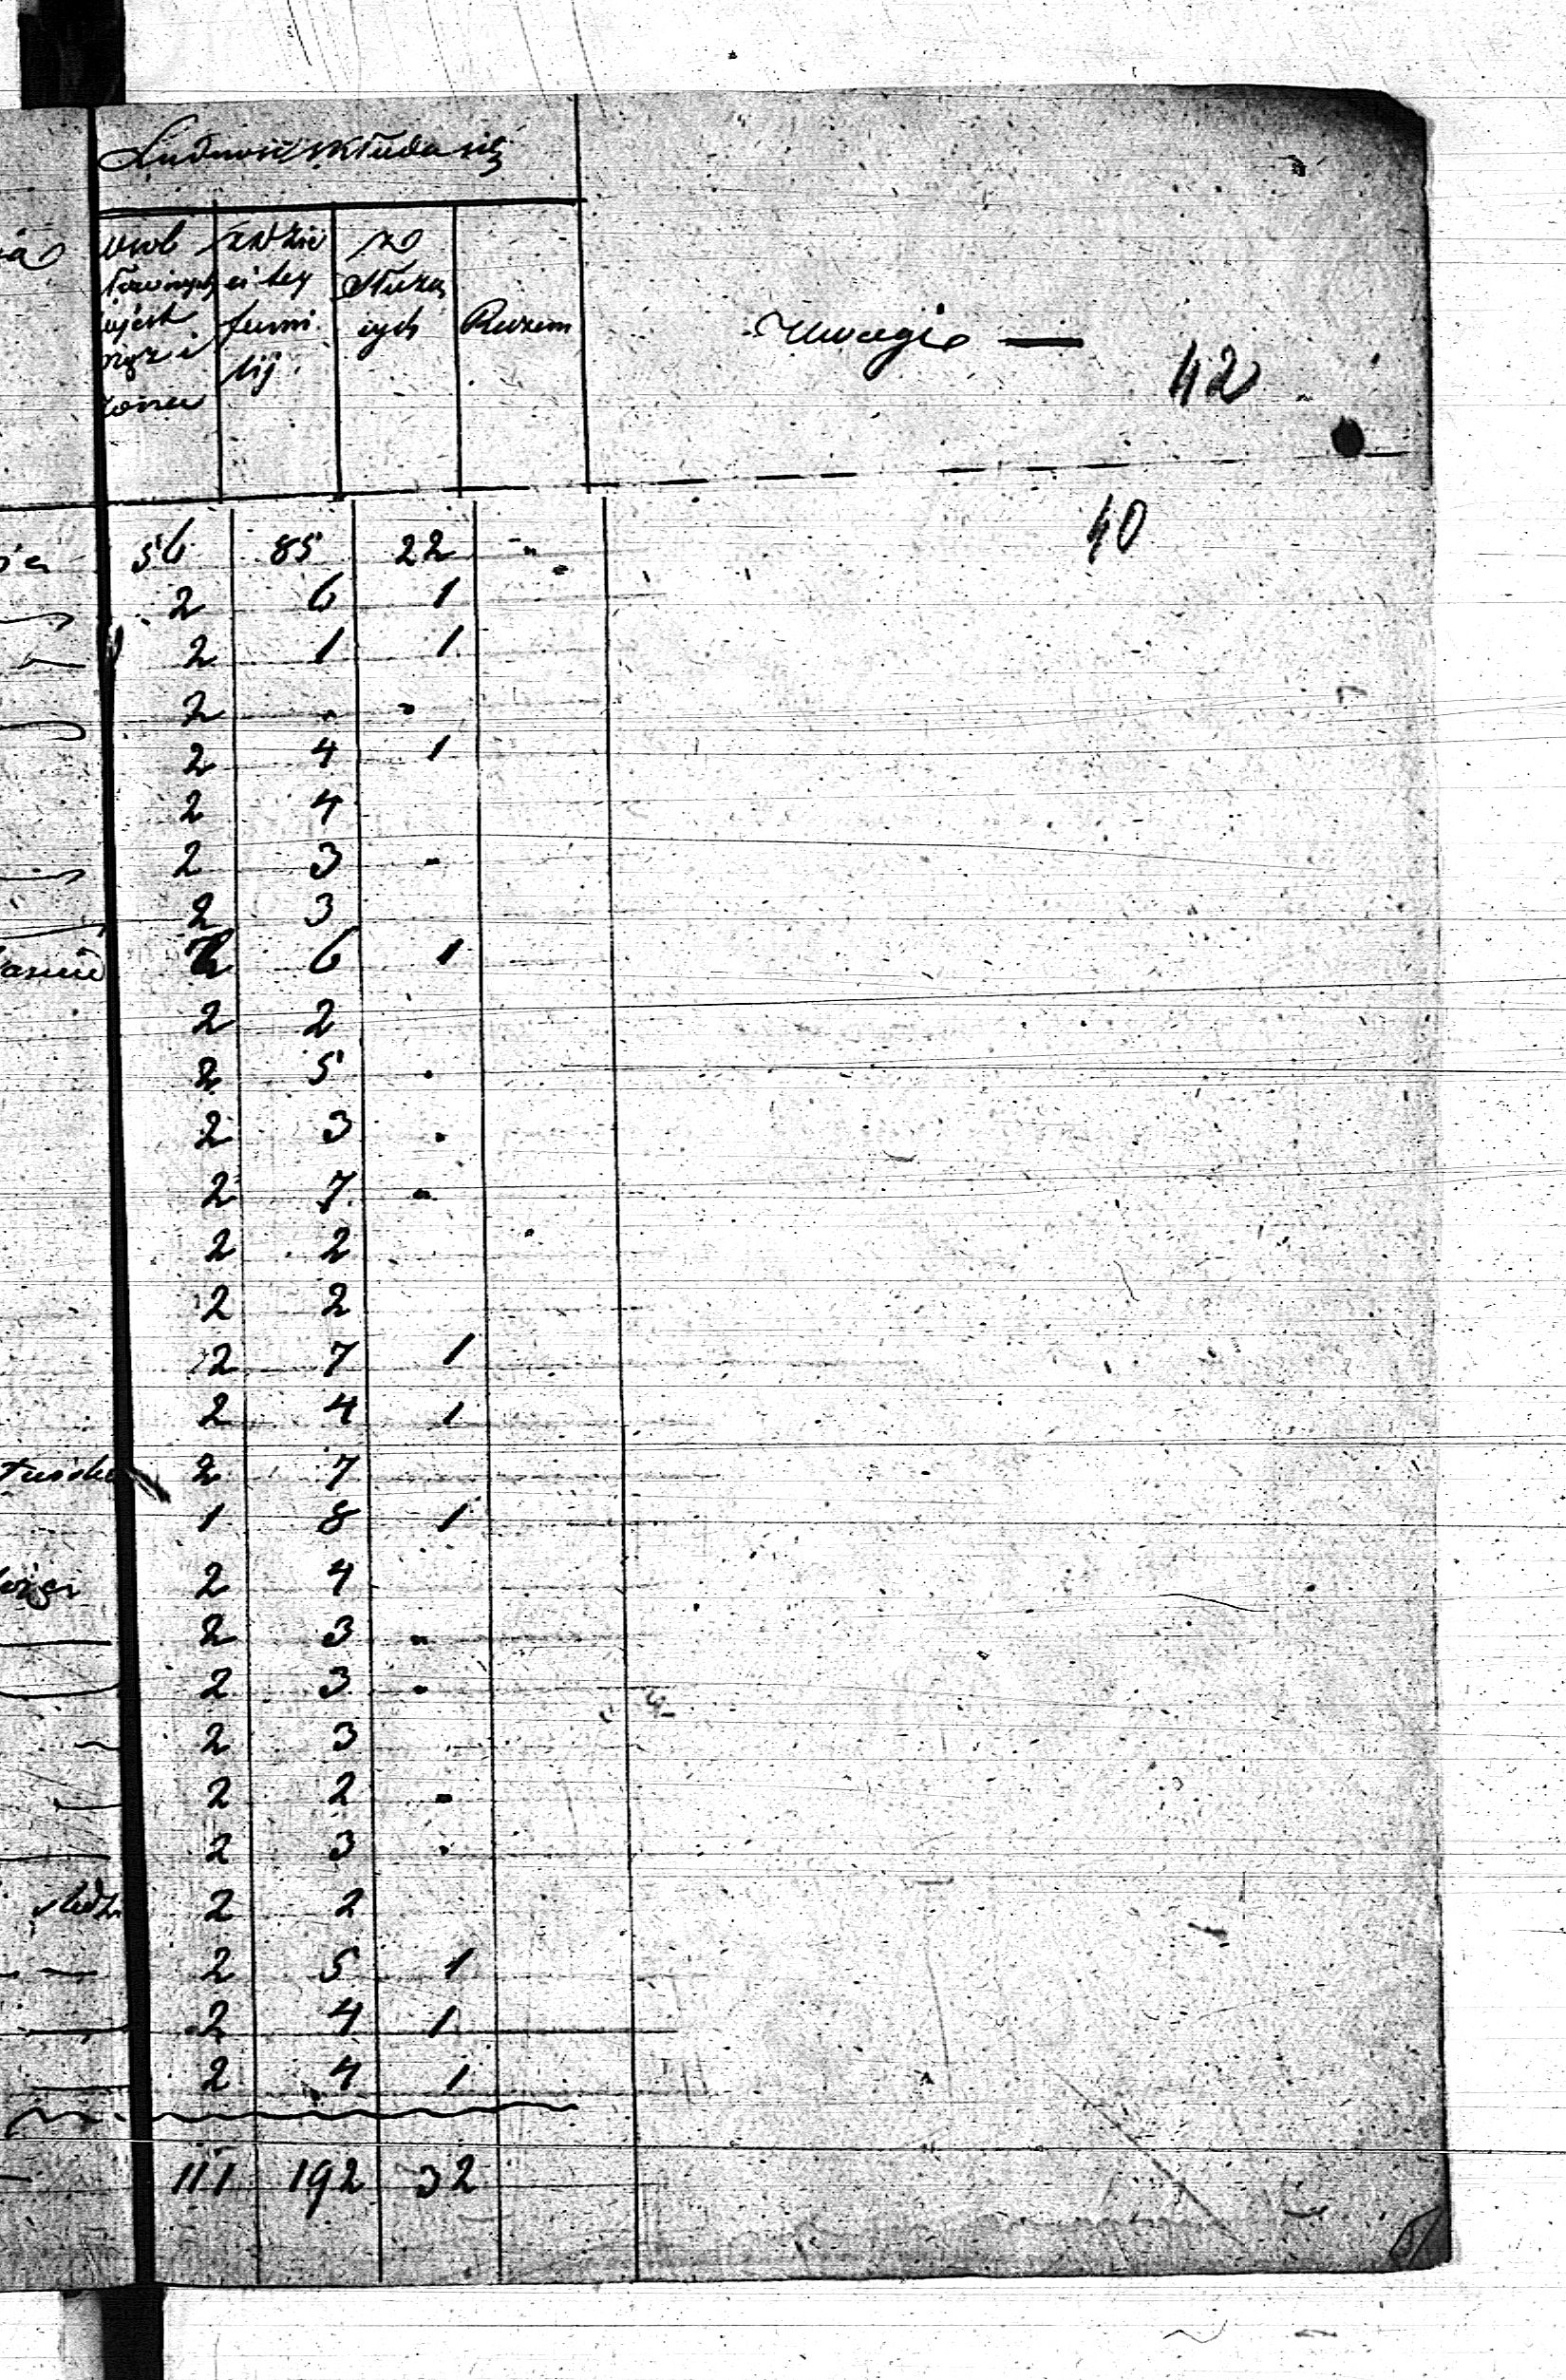 Ludność składa się
osób
z dzie
ci tey
fami
lij
ze
służą
cych
Razem
Uwagi —
42
40
56 85 22 "
2 6 1
2 1 1
2 . .
2 4 1
2 4
2 3 -
2 3
2 6 1
2 2
2 5 .
2 3 .
2 7 "
2 2
2 2
2 7 1
2 4 1
2 7
1 8 1
2 4
2 3 "
2 3 .
2 3
2 2 -
2 3 .
2 2
2 5 1
2 4 1
2 4 1
111 192 32